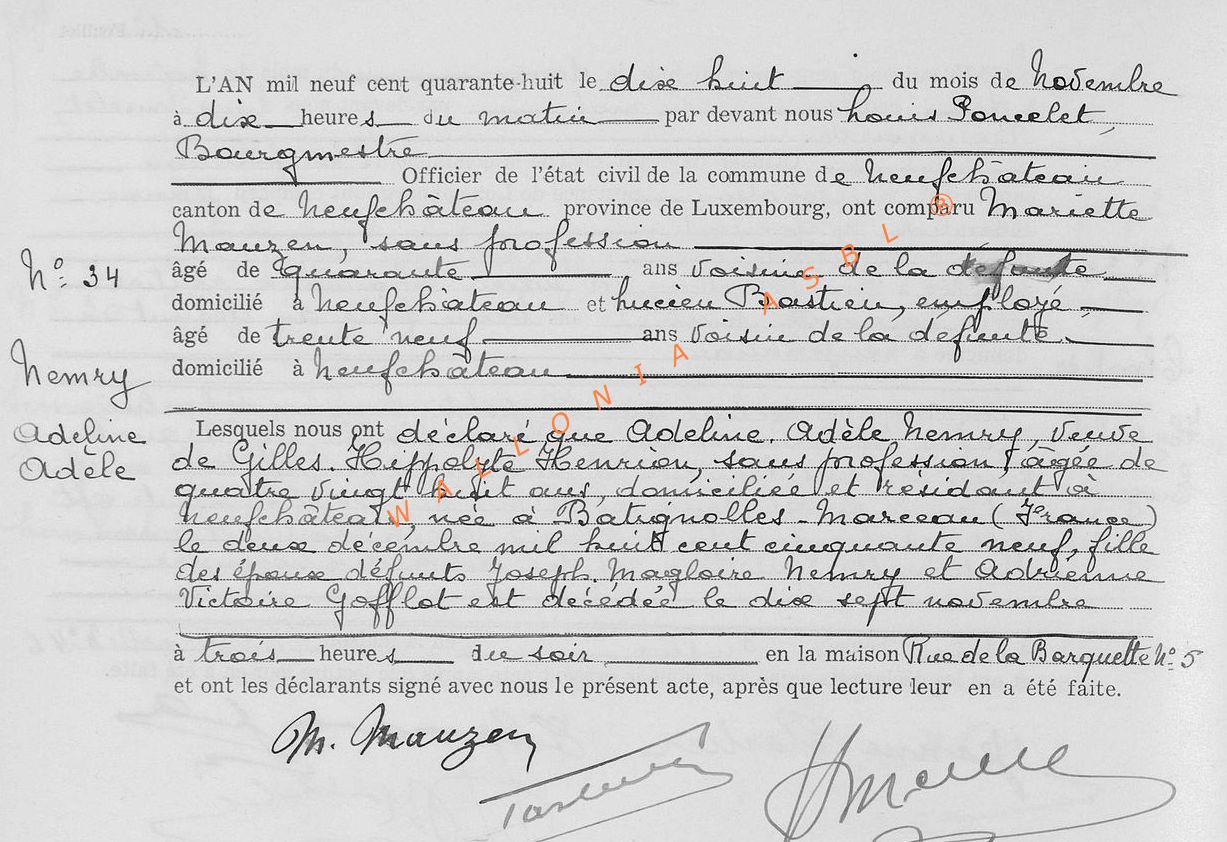 L'AN mil neuf cent quarante-huit le dix huit du mois de Novembre
à dix heures du matin par devant nous Louis Poncelet,
Bourgmestre
Officier de l'état civil de la commune de Neufchâteau
canton de Neufchâteau province de Luxembourg, ont comparu Mariette
Mauzen, sans profession
N° 34
âgé de quarante ans voisine de la défunte
domicilié à Neufchâteau et Lucien Bastien, employé
âgé de trente neuf ans voisin de la défunte.
domicilié à Neufchâteau
Nemry
Adeline
Adèle
Lesquels nous ont déclaré que Adeline. Adèle Nemry, veuve
de Gilles. Hippolyte Henrion, sans profession, âgée de
quatre vingt huit ans, domiciliée et résidant à
Neufchâteau, née à Batignolles-Marceau (France)
le deux décembre mil huit cent cinquante neuf, fille
des époux défunts Joseph. Magloire Nemry et Adrienne
Victoire Gofflot est décédée le dix sept novembre
à trois heures du soir en la maison Rue de la Barquette N° 5
et ont les déclarants signé avec nous le présent acte, après que lecture leur en a été faite.
M. Mauzen
WALLONIA ASBL ®